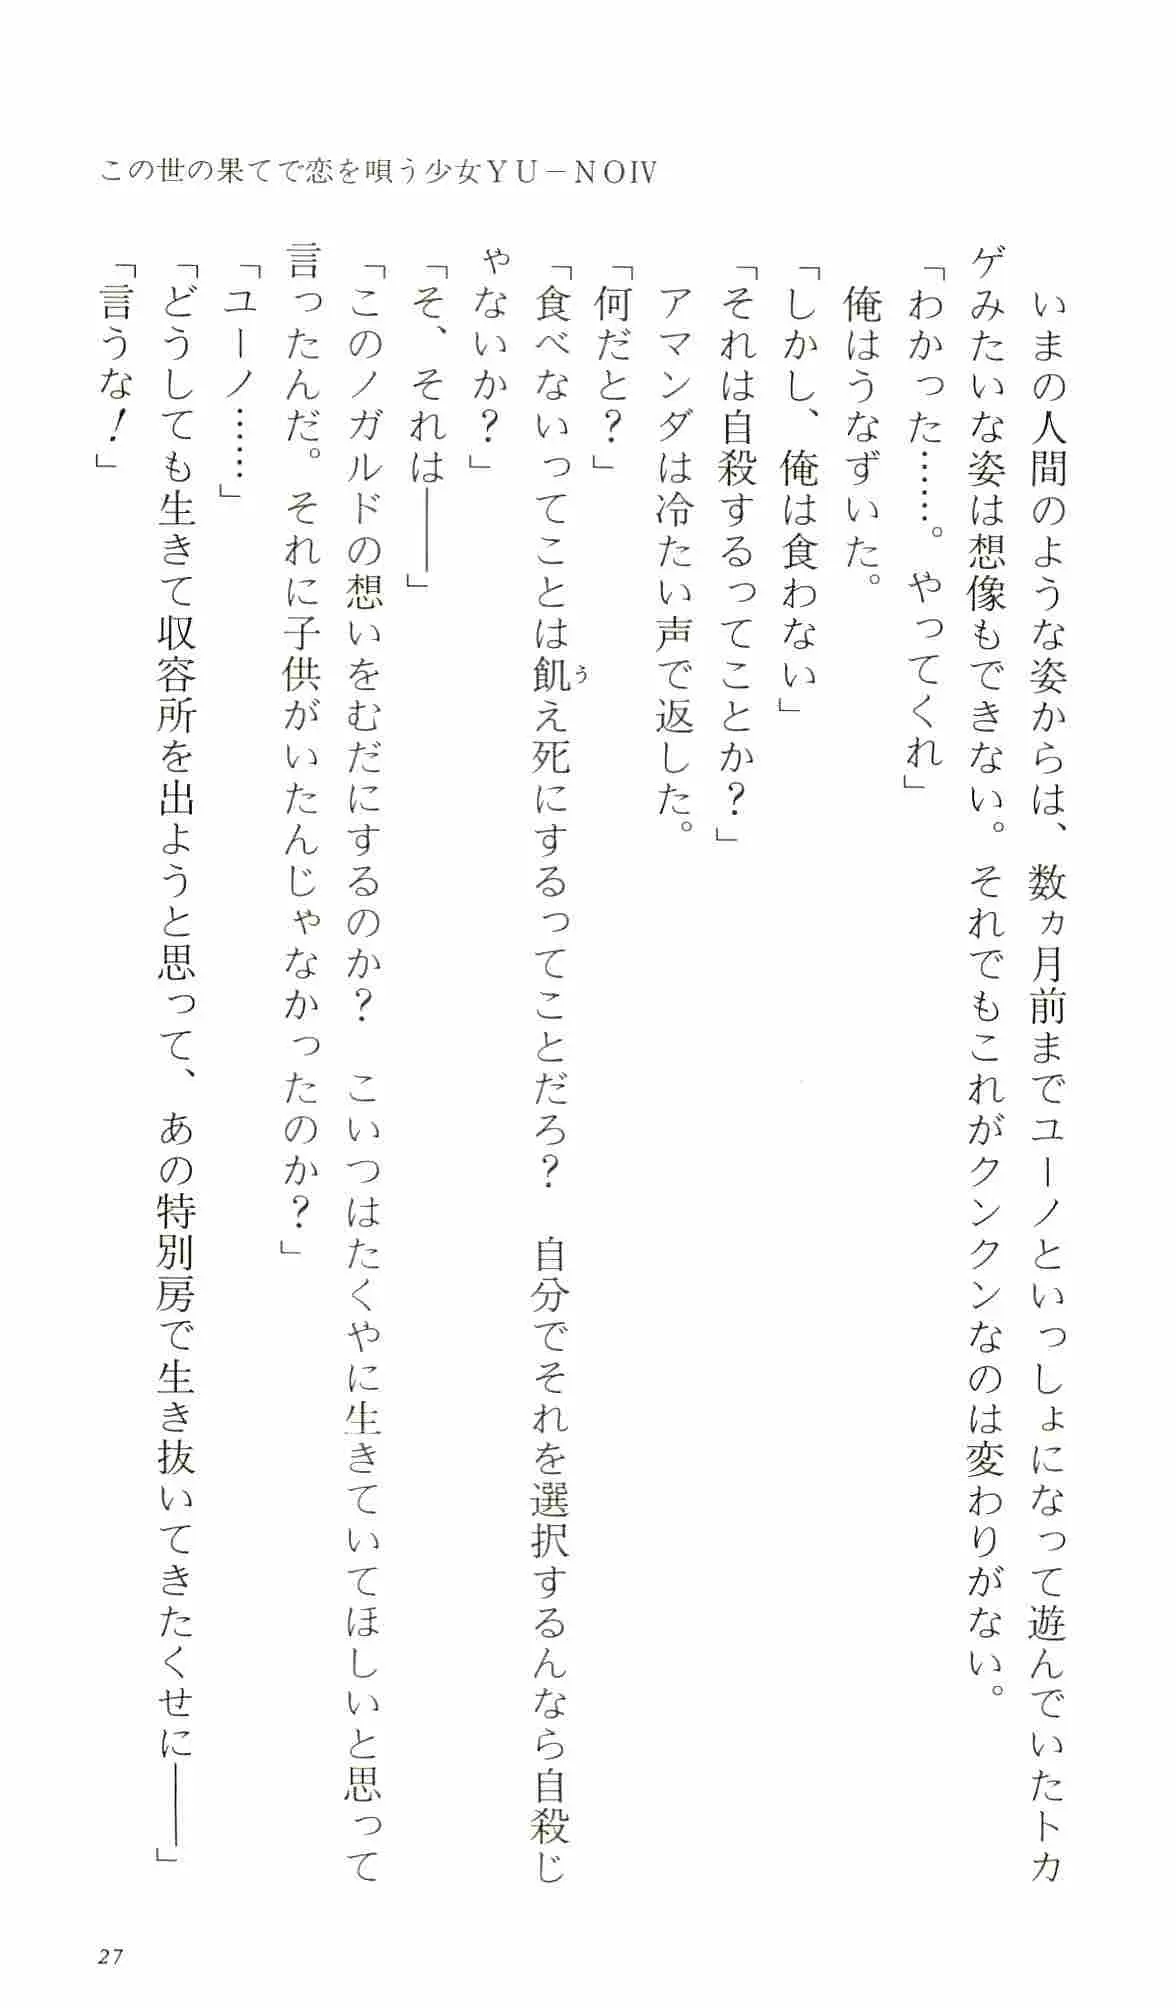 この世の果てで恋を唄う少女ＹＵ－ＮＯⅣ
いまの人間のような姿からは、数ヵ月前までユーノといっしょになって遊んでいたトカ
ゲみたいな姿は想像もできない。それでもこれがクンクンなのは変わりがない。
「わかった……。やってくれ」
俺はうなずいた。
「しかし、俺は食わない」
「それは自殺するってことか？」
アマンダは冷たい声で返した。
「何だと？」
「食べないってことは飢え死にするってことだろ？　自分でそれを選択するんなら自殺じ
ゃないか？」
「そ、それは――」
「このノガルドの想いをむだにするのか？　こいつはたくやに生きていてほしいと思って
言ったんだ。それに子供がいたんじゃなかったのか？」
「ユーノ……」
「どうしても生きて収容所を出ようと思って、あの特別房で生き抜いてきたくせに――」
「言うな！」
27